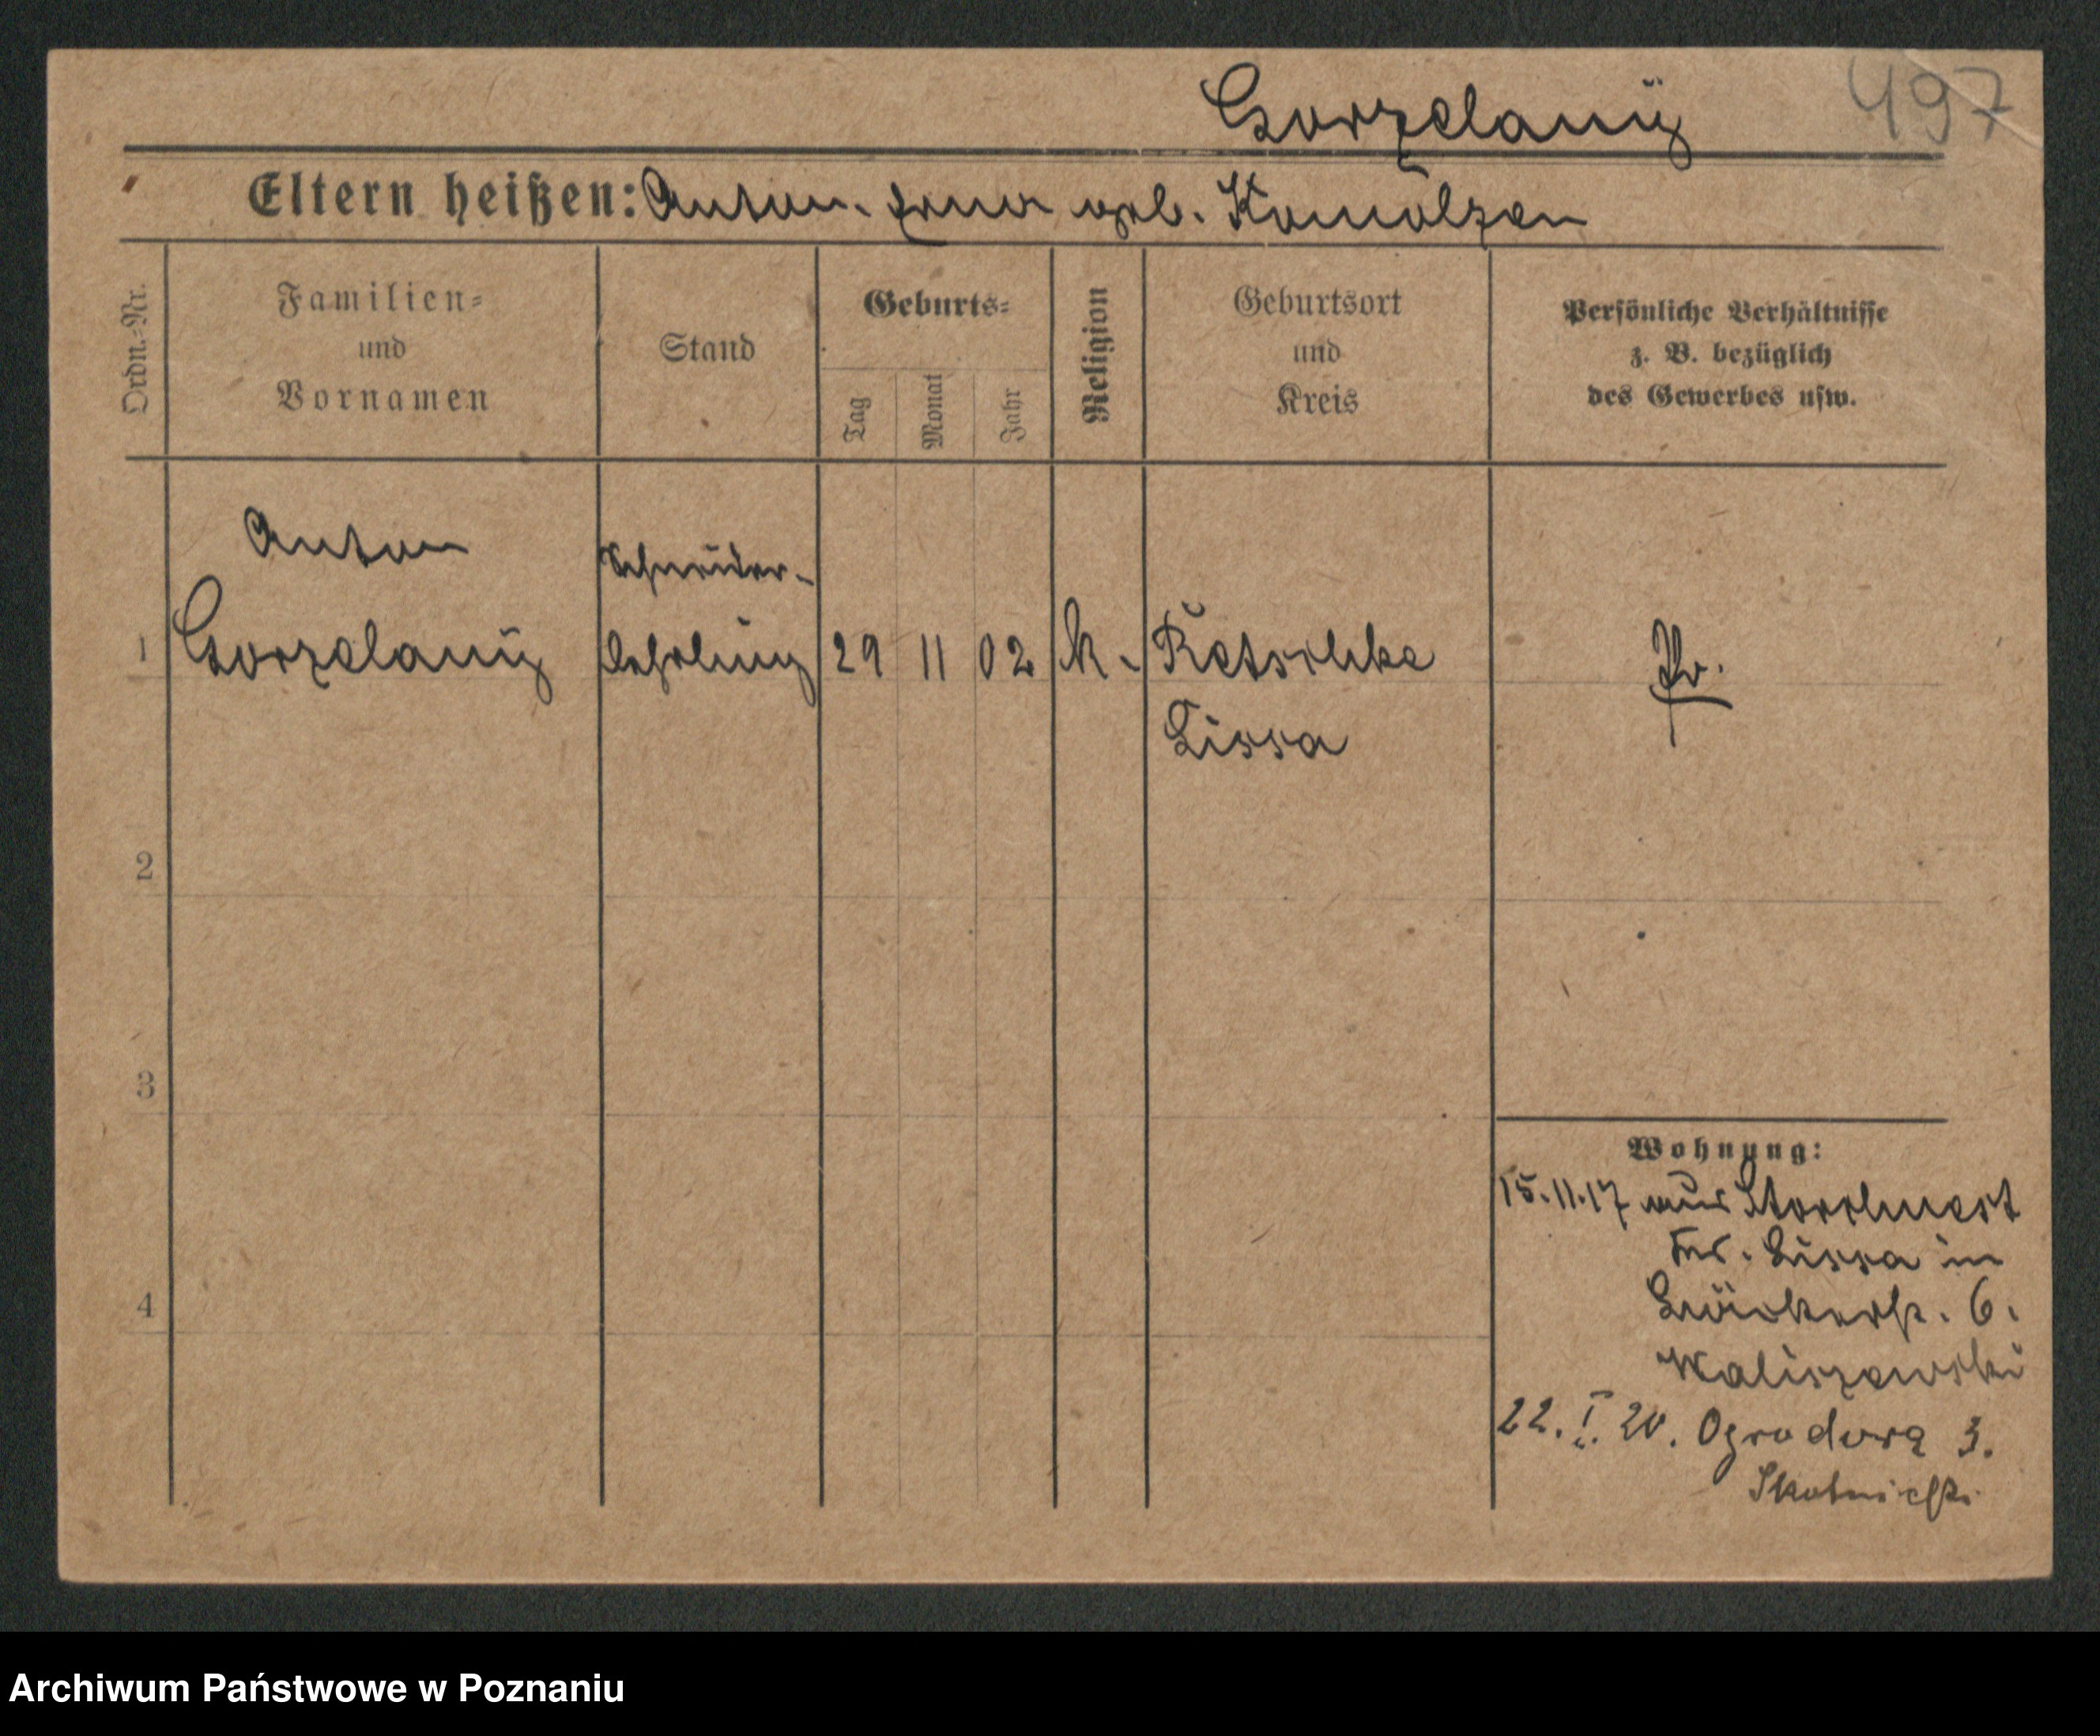 497
Gorzelanÿ
Eltern heißen: Anton. geb.
Ordn.-Nr.
Familien-
und
Vornamen
Stand
Geburts-
Tag
Monat
Jahr
Religion
Geburtsort
und
Kreis
Persönliche Verhältnisse
z. B. bezüglich
des Gewerbes usw.
Anton
Schneider-
1 Gorzelanÿ lehrling 29 11 02 k. Retschke Pr.
Lissa
2
3
4
Wohnung:
15.11.17 aus Storchnest
Krs. Lissa in
6.
Waliszewski
22. I. 20. Ogrodowa 3.
Skotnicki
Archiwum Państwowe w Poznaniu